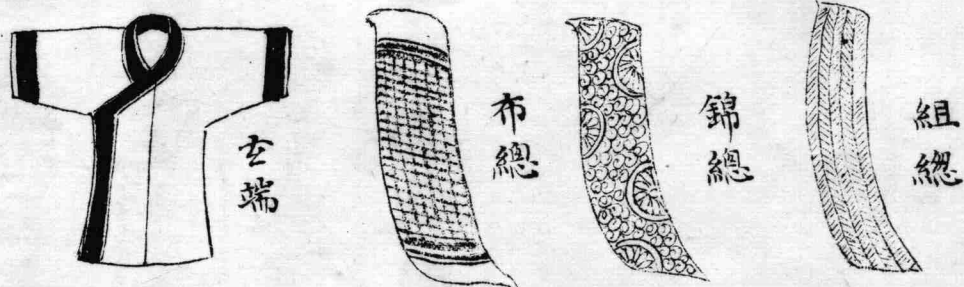 組緫
錦總
布總
玄端